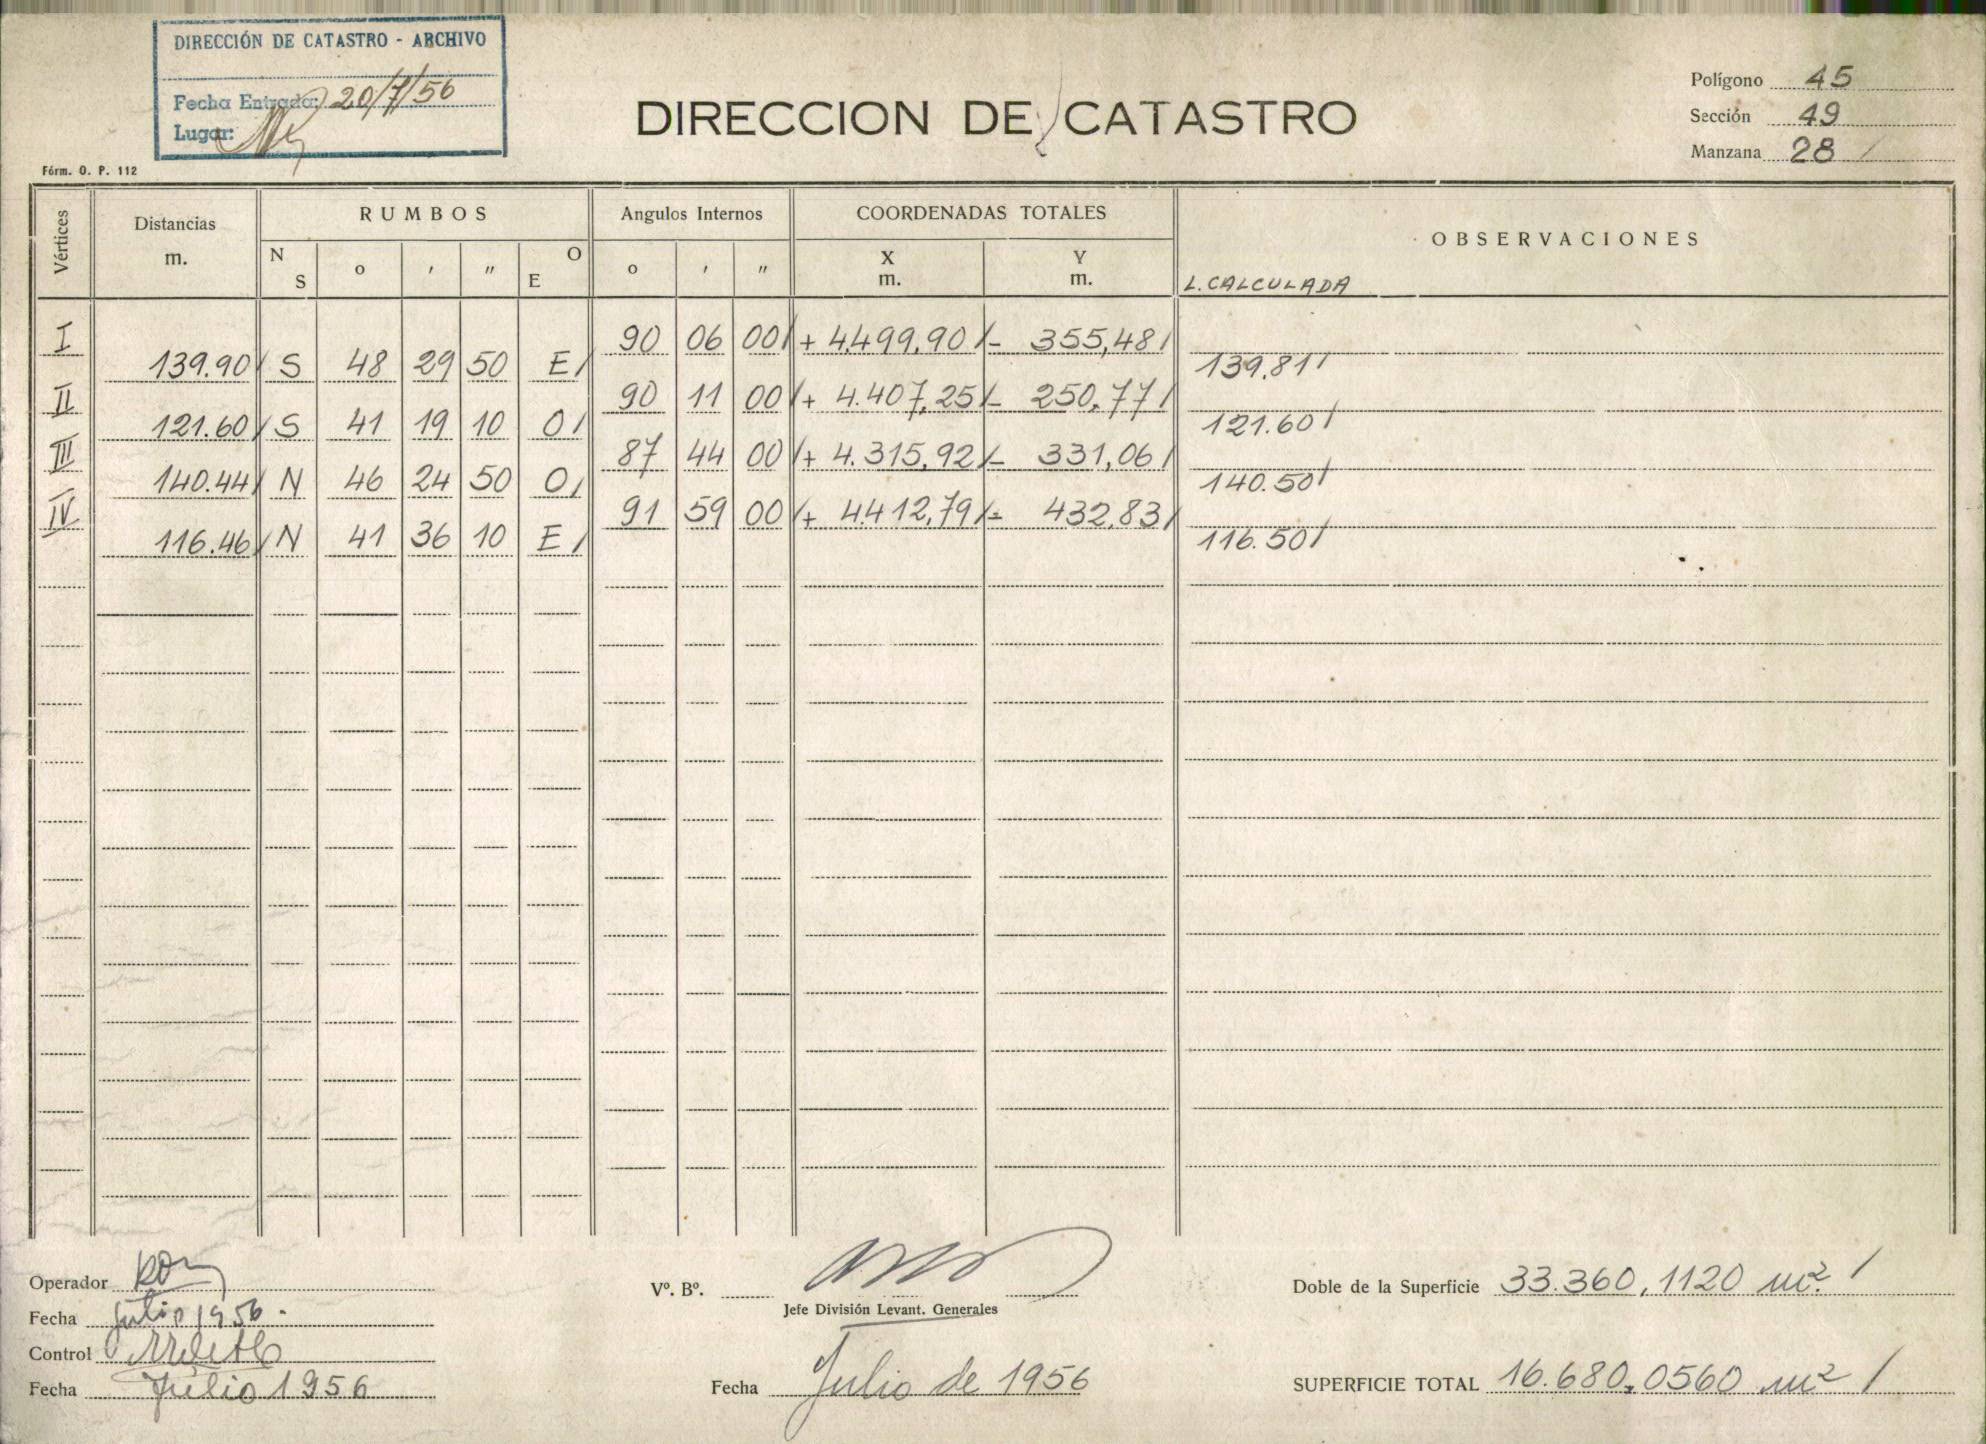 DIRECCIÓN DE CATASTRO - ARCHIVO
Fecha Entrada: 20/7/56
Lugar:
DIRECCION DE CATASTRO
Polígono 45
Sección 49
Manzana 28 /
Fórm. O. P. 112
Vértices
Distancias m.
RUMBOS
Angulos Internos
COORDENADAS TOTALES
OBSERVACIONES
N S o ' " O E
o ' "
X m.
Y m.
L. CALCULADA
I 90 06 00/ + 4.499,90/ - 355,48/
139.90/ S 48 29 50 E/ 139.81/
II 90 11 00/ + 4.407,25/ - 250,77/
121.60/ S 41 19 10 O/ 121.60/
III 87 44 00/ + 4.315,92/ - 331,06/
140.44/ N 46 24 50 O/ 140.50/
IV 91 59 00/ + 4.412,79/ - 432,83/
116.46/ N 41 36 10 E/ 116.50/
Operador
Fecha Julio 1956.-
Control
Fecha Julio 1956
Vº. Bº.
Jefe División Levant. Generales
Fecha Julio de 1956
Doble de la Superficie 33.360,1120 m². /
SUPERFICIE TOTAL 16.680,0560 m² /